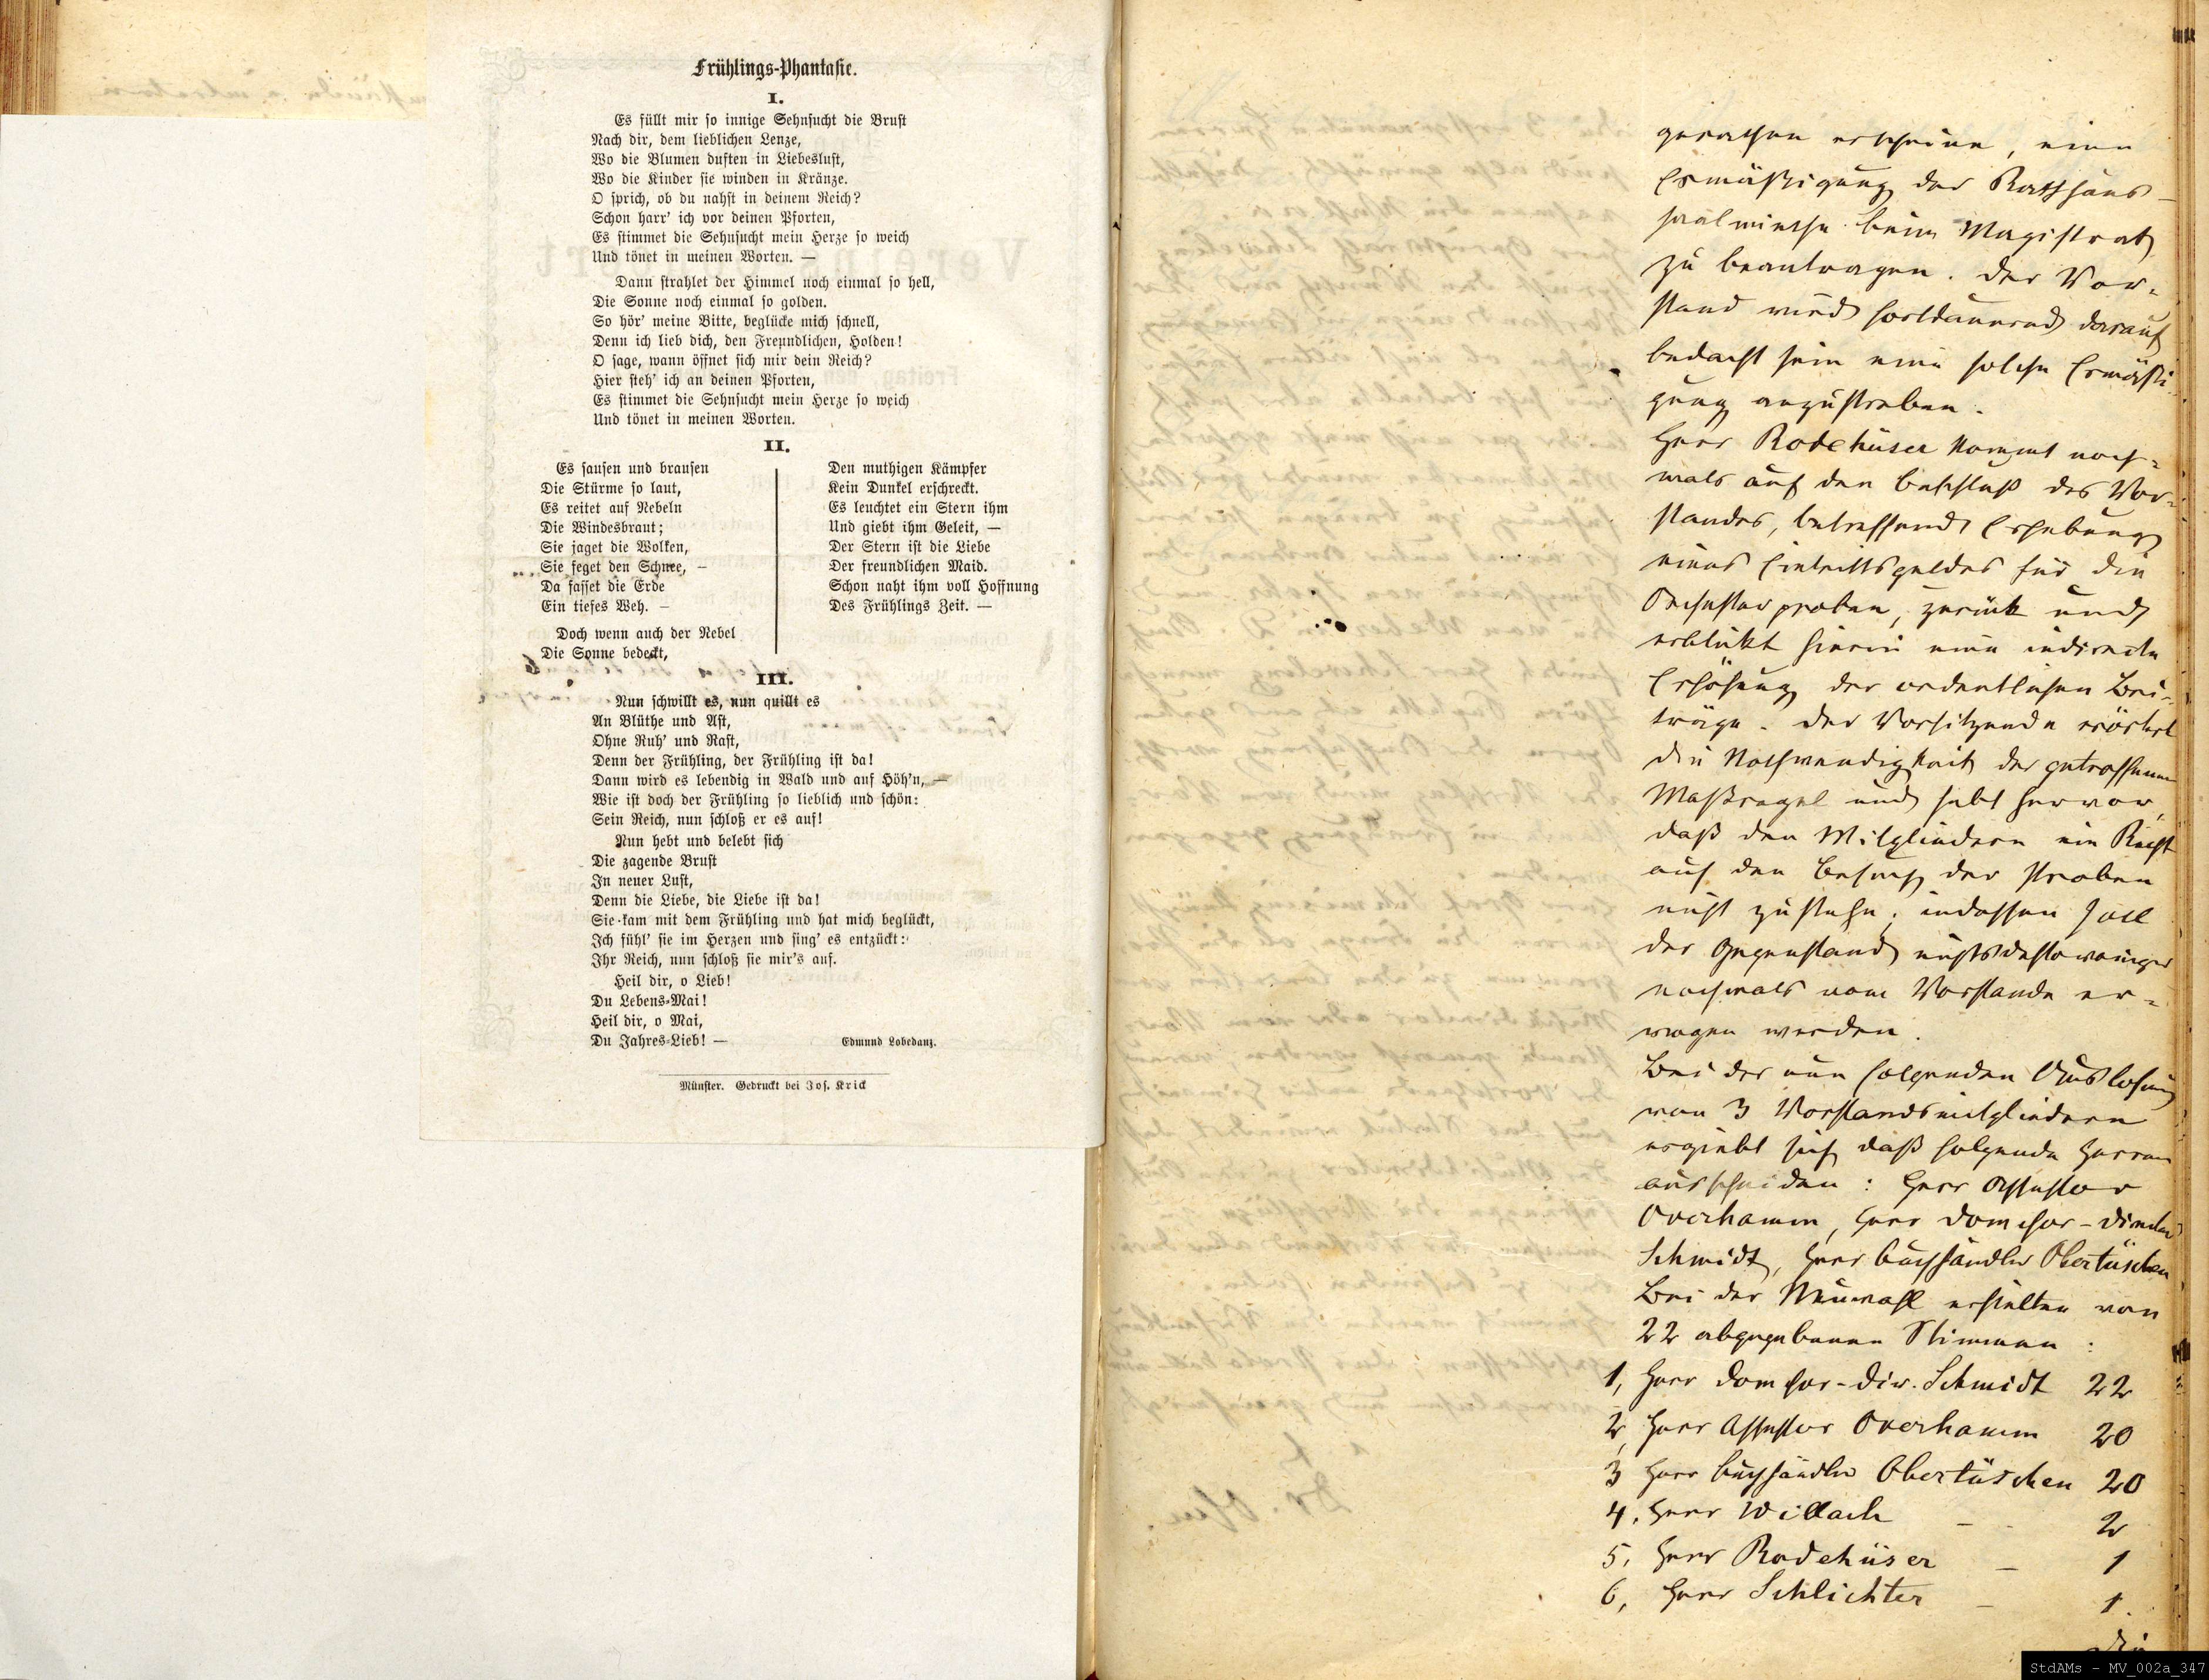 Frühlings-Phantasie.
I.
Es füllt mir so innige Sehnsucht die Brust
Nach dir, dem lieblichen Lenze,
Wo die Blumen duften in Liebeslust,
Wo die Kinder sie winden in Kränze.
O sprich, ob du nahst in deinem Reich?
Schon harr' ich vor deinen Pforten,
Es stimmet die Sehnsucht mein Herze so weich
Und tönet in meinen Worten. —
Dann strahlet der Himmel noch einmal so hell,
Die Sonne noch einmal so golden.
So hör' meine Bitte, beglücke mich schnell,
Denn ich lieb dich, den Freundlichen, Holden!
O sage, wann öffnet sich mir dein Reich?
Hier steh' ich an deinen Pforten,
Es stimmet die Sehnsucht mein Herze so weich
Und tönet in meinen Worten.
II.
Es sausen und brausen
Die Stürme so laut,
Es reitet auf Nebeln
Die Windesbraut;
Sie jaget die Wolken,
Sie feget den Schnee, —
Da fasset die Erde
Ein tiefes Weh. —
Doch wenn auch der Nebel
Die Sonne bedeckt,
Den muthigen Kämpfer
Kein Dunkel erschreckt.
Es leuchtet ein Stern ihm
Und giebt ihm Geleit, —
Der Stern ist die Liebe
Der freundlichen Maid.
Schon naht ihm voll Hoffnung
Des Frühlings Zeit. —
III.
Nun schwillt es, nun quillt es
An Blüthe und Ast,
Ohne Ruh' und Rast,
Denn der Frühling, der Frühling ist da!
Dann wird es lebendig in Wald und auf Höh'n, —
Wie ist doch der Frühling so lieblich und schön:
Sein Reich, nun schloß er es auf!
Nun hebt und belebt sich
Die zagende Brust
In neuer Lust,
Denn die Liebe, die Liebe ist da!
Sie kam mit dem Frühling und hat mich beglückt,
Ich fühl' sie im Herzen und sing' es entzückt:
Ihr Reich, nun schloß sie mir's auf.
Heil dir, o Lieb!
Du Lebens-Mai!
Heil dir, o Mai,
Du Jahres-Lieb! —
Edmund Lobedanz.
Münster. Gedruckt bei Jos. Krick
gerathen erscheine, eine
Ermäßigung der Rathhaus-
saalmiethe beim Magistrat
zu beantragen. Der Vor-
stand wird fortdauernd darauf
bedacht sein eine solche Ermäßi-
gung anzustreben.
Herr Rodehüser kommt noch-
mals auf den Beschluß des Vor-
standes, betreffend Erhebung
eines Eintrittsgeldes für die
Orchesterproben, zurück und
erblickt hierin eine indirecte
Erhöhung der ordentlichen Bei-
träge. Der Vorsitzende erörtert
die Nothwendigkeit der getroffenen
Maßregel und hebt hervor,
daß den Mitgliedern ein Recht
auf den Besuch der Proben
nicht zustehe; indessen soll
der Gegenstand nichtsdestoweniger
nochmals vom Vorstande er-
wogen werden.
Bei der nun folgenden Ausloosung
von 3 Vorstandsmitgliedern
ergiebt sich daß folgende Herren
ausscheiden: Herr Assessor
Overhamm, Herr Domchor-Director
Schmidt, Herr Buchhändler Obertüschen
Bei der Neuwahl erhielten von
22 abgegebenen Stimmen:
1, Herr Domchor-Dir. Schmidt 22
2, Herr Assessor Overhamm 20
3 Herr Buchhändler Obertüschen 20
4, Herr Willach — 2
5, Herr Rodehüser — 1
6, Herr Schlichter — 1.
Die
StdAMs - MV_002a_347